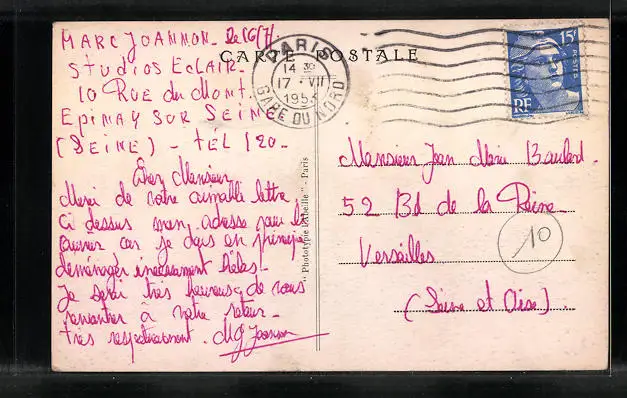 MARC JOANNON - Le 16/7/
STUDIOS ECLAIR -
10 RUE du Mont
EPINAY SUR SEINE
(SEINE) - TÉL 120 -
Cher Monsieur,
Merci de votre aimable lettre.
Ci dessus mon adresse pour le
car je dois en principe
déménager hélas -
Je serai très heureux de vous
rencontrer à votre retour -
très respectueusement. MGJoannon
CARTE POSTALE
PARIS
14 30
17 · VII
1953
GARE DU NORD
15F
POSTES
RF
"Phototype Abeille" - Paris
Monsieur Jean Marie Baulard -
52 Bd de la Reine
Versailles
(Seine et Oise)
10